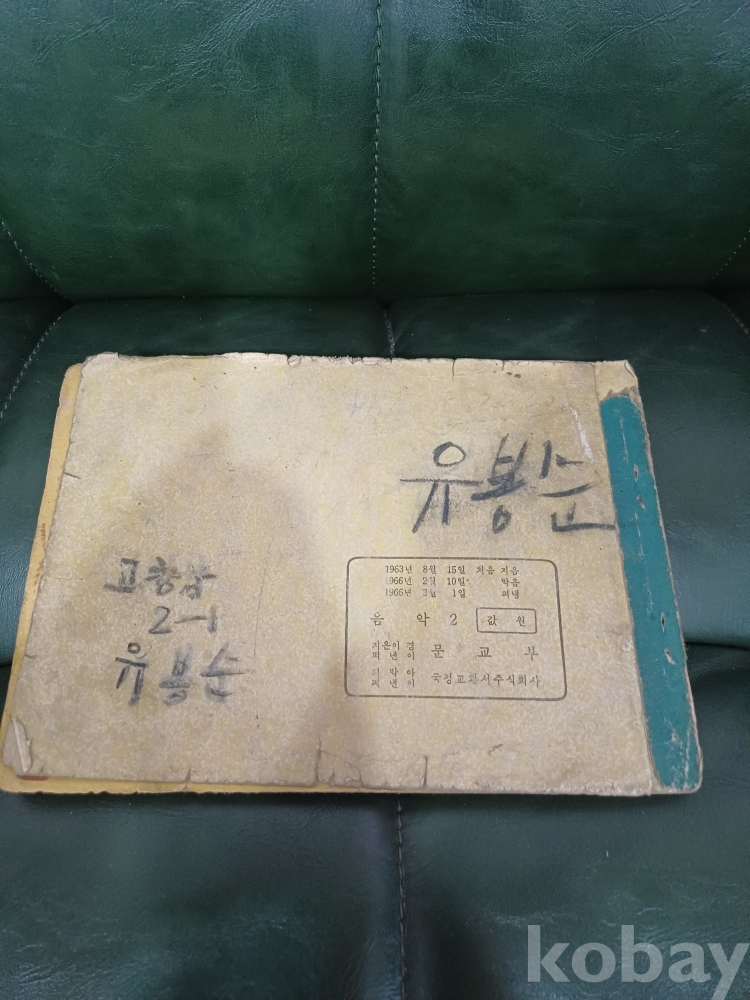 유봉순
1963년 8월 15일 처음 지음
1966년 2월 10일 박음
1966년 3월 1일 펴냄
음 악 2 값 원
지은이 겸
펴낸이 문 교 부
펴낸이 국정교과서주식회사
2-1
유봉순
kobay